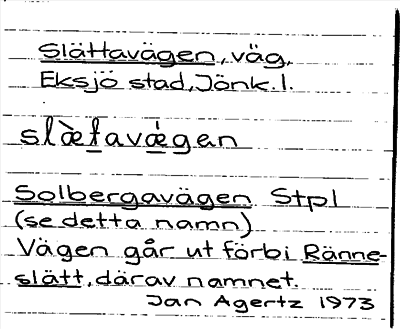 Slättavägen, väg,
Eksjö stad, Jönk. l.
slæ̀t̲avǽ̲gen
Solbergavägen Stpl
(se detta namn)
Vägen går ut förbi Ränne-
slätt, därav namnet.
Jan Agertz 1973